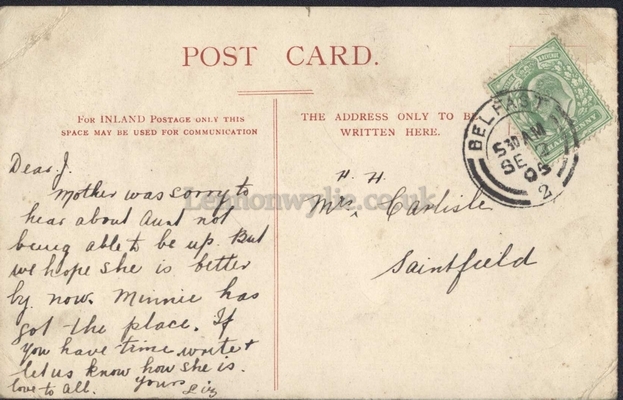 POST CARD.
FOR INLAND POSTAGE ONLY THIS
SPACE MAY BE USED FOR COMMUNICATION
THE ADDRESS ONLY TO BE
WRITTEN HERE.
BELFAST
530 AM
SE 2
05
2
Dear J.
Mother was sorry to
hear about Aunt not
being able to be up. But
we hope she is better
by now. Minnie has
got the place. If
you have time write +
let us know how she is.
love to all. Yours Liz
H. H
Mrs, Carlisle
Saintfield
Lennonwylie.co.uk